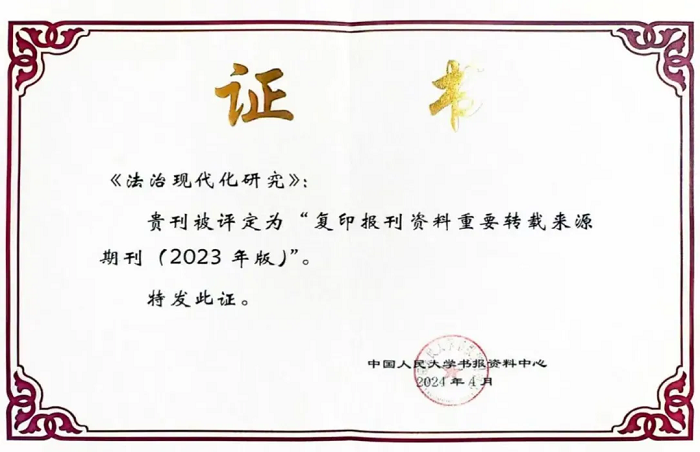 证书
《法治现代化研究》:
贵刊被评定为“复印报刊资料重要转载来源
期刊(2023 年版)”。
特发此证。
中国人民大学书报资料中心
2024 年 4 月